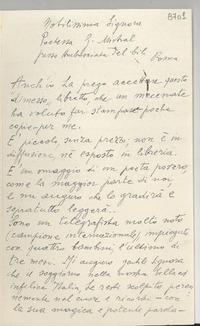 8701
Nobilissima Signora
Poetessa G. Mistral
presso Ambasciata del Cile
Roma
Anch'io La prego accettare questo
dimesso, libretto, che un mecenate
ha voluto far stampare poche
copie per me.
E' piccolo, senza prezzo, non è in
diffusione, nè esposto in libreria.
E' un omaggio di un poeta povero,
come la maggior parte di noi,
e mi auguro che lo gradirà e
sopratutto leggerà.
Sono un telegrafista molto noto
(campione internazionale), impiegato
con quattro bambini, e viviamo di
tre meni. Mi auguro gentile Signora
che il soggiorno nella nostra bella ed
infelice Italia, Le resti scolpito, peren
nemente nel cuore e ricordi - con
la sua magica e potente parola -